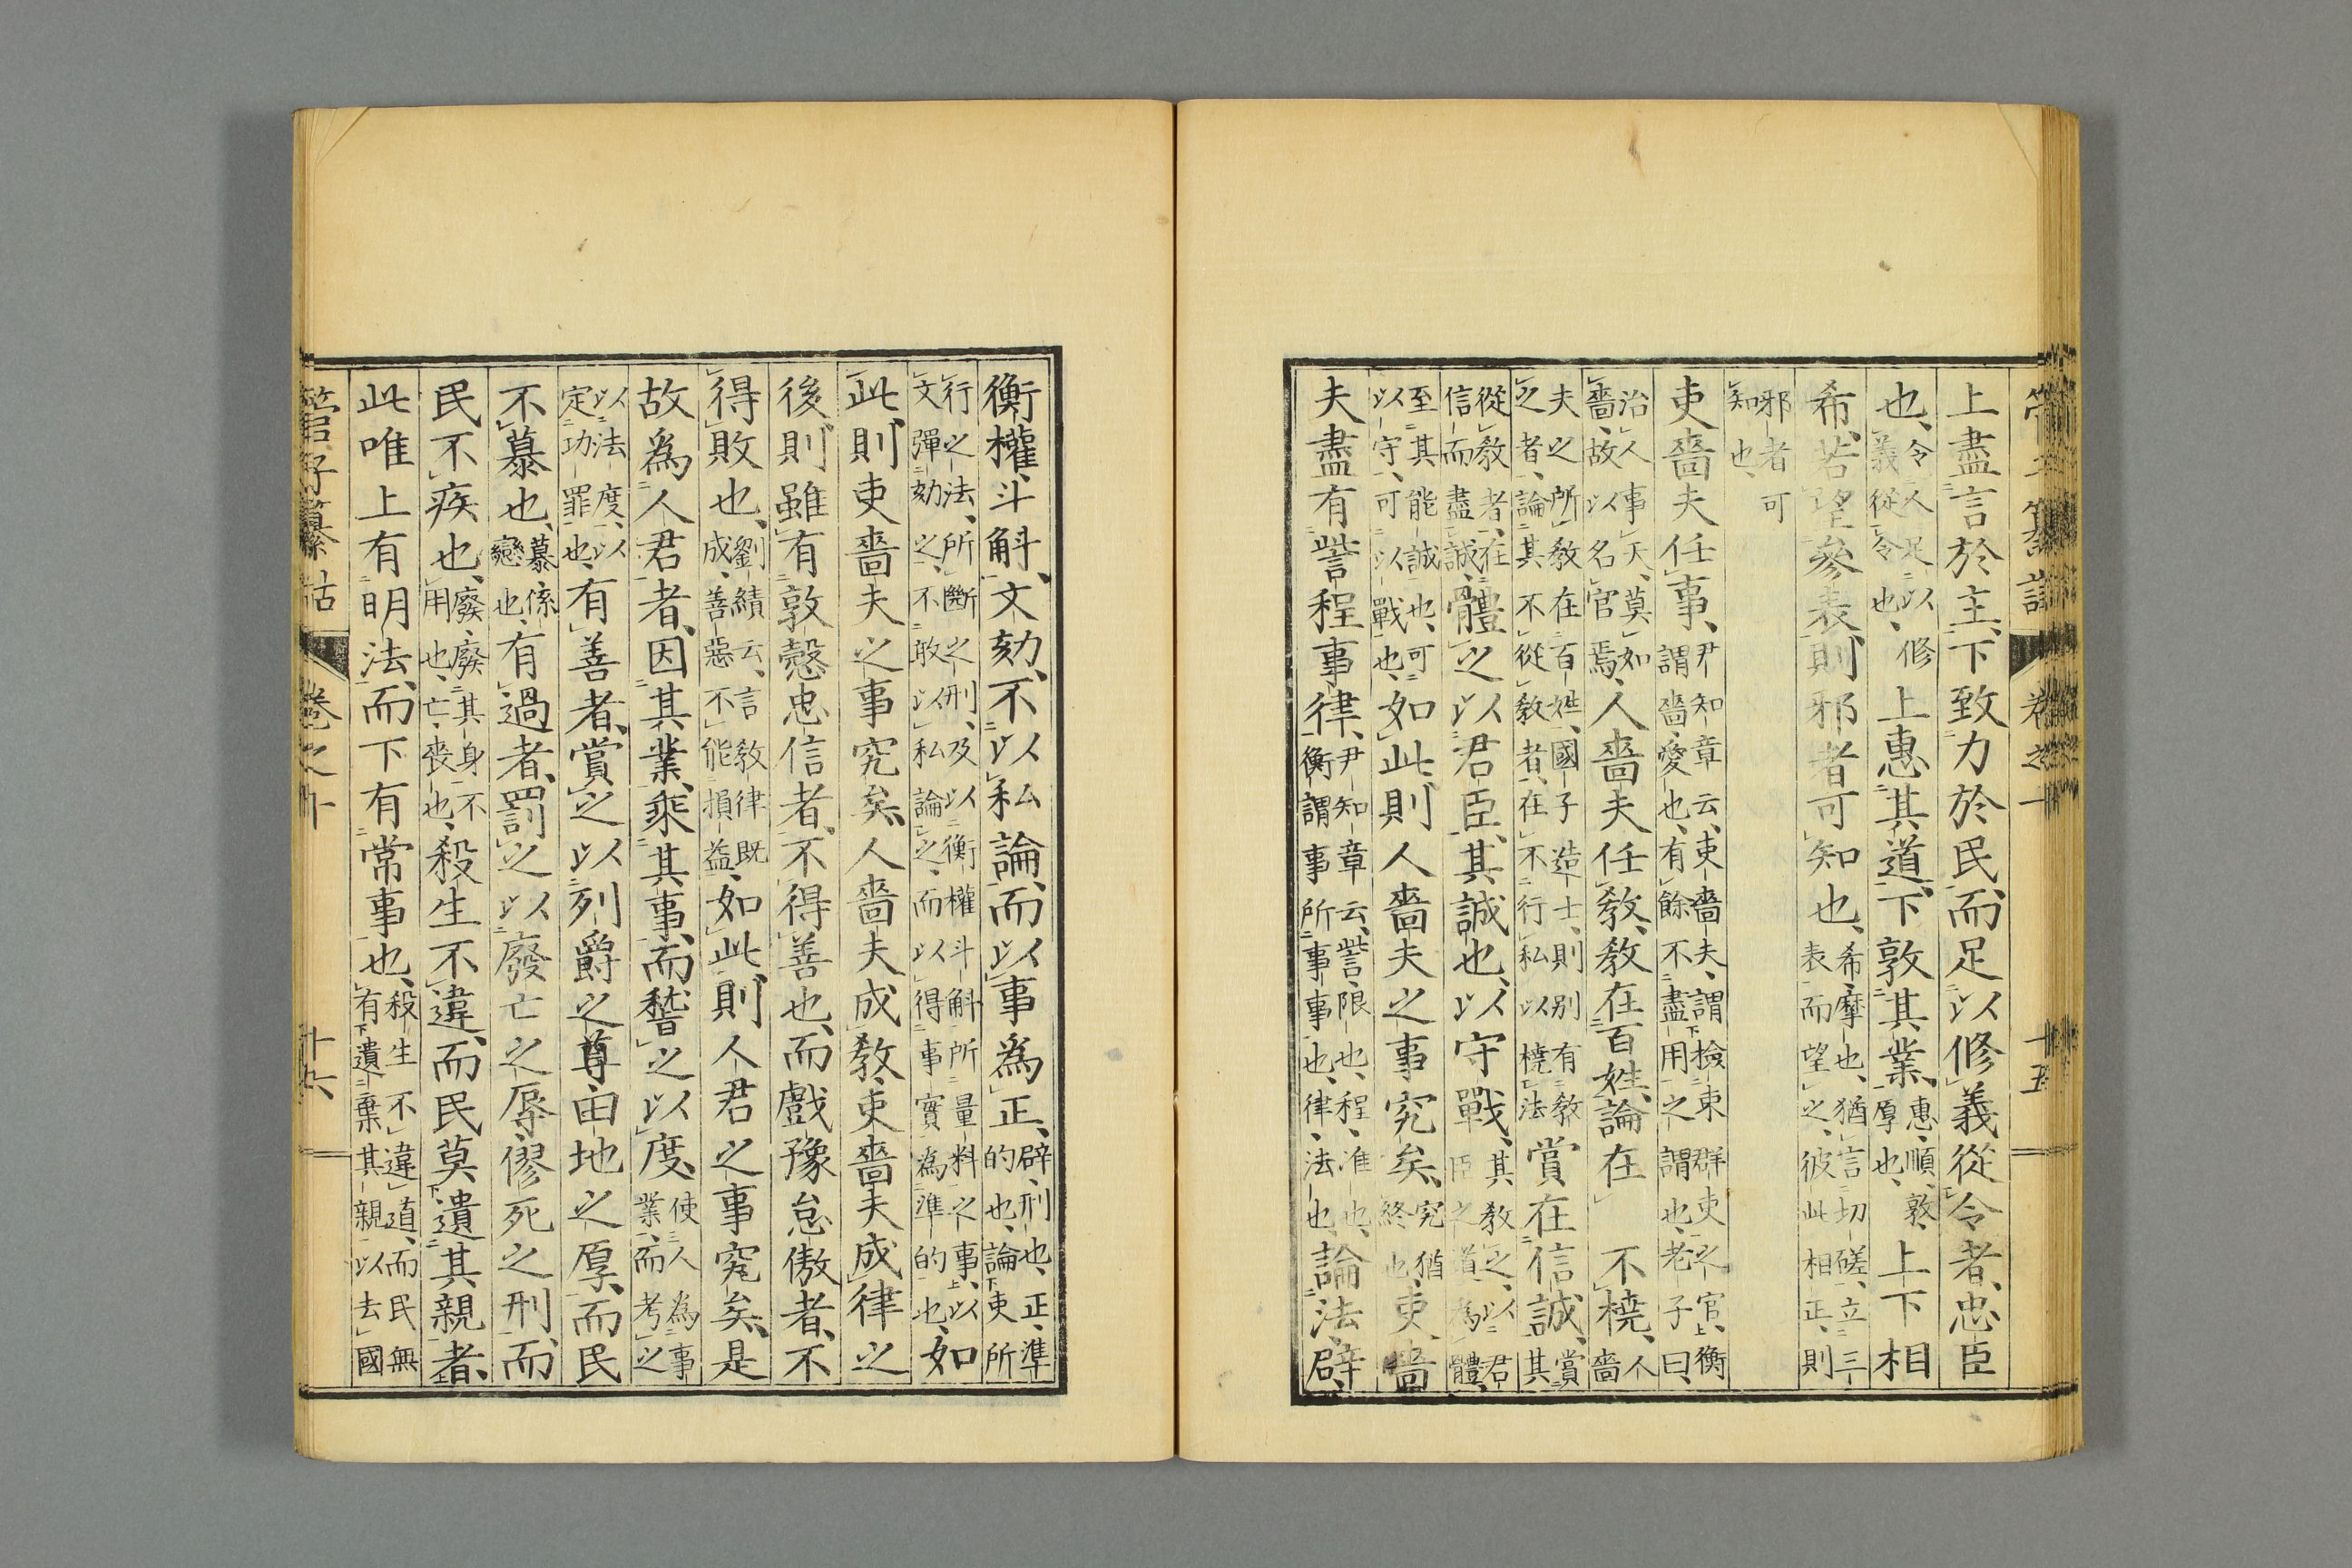 上盡言於主、下致力於民、而足以修義從令者、忠臣
也、令人足以修義從令也、上惠其道、下敦其業、惠、順、敦、厚也、上下相
希、若望參表、則邪者可知也、希、摩也、猶言切磋、立三表而望之、彼此相正、則
邪者可知也、
吏嗇夫任事、尹知章云、吏嗇夫、謂檢束群吏之官、衡謂嗇、愛也、有餘不盡用之謂也、老子曰、
治人事天、莫如嗇、故以名官焉、人嗇夫任教、教在百姓、論在不橈、人嗇
夫之所教在百姓、國子造士、則別有教之者、論其不從教者、在不行私以橈法、賞在信誠、賞其
從教者、在信而盡誠、體之以君臣、其誠也、以守戰、其教之、以君臣之道、為體、
至其能誠也、可以守、可以戰也、如此、則人嗇夫之事究矣、究猶終也、吏嗇
夫盡有訾程事律、尹知章云、訾、限也、程、准也、衡謂事所事事也、律、法也、論法辟、
衡權、斗斛、文劾、不以私論、而以事為正、辟、刑也、正、準的也、論下吏所
行之法、所斷之刑、及以衡權斗斛所量料之事、以文彈劾之、不敢以私論之、而以得事實為準的也、如
此、則吏嗇夫之事究矣、人嗇夫成教、吏嗇夫成律之
後、則雖有敦慤忠信者、不得善也、而戲豫怠傲者、不
得敗也、劉績云、言教律既成、善惡不能損益、如此、則人君之事究矣、是
故爲人君者、因其業、乘其事、而稽之以度、使人為事業、而考之
以法度、以定功罪也、有善者、賞之以列爵之尊、田地之厚、而民
不慕也、慕、係戀也、有過者、罰之以廢亡之辱、僇死之刑、而
民不疾也、廢、廢其身不用也、亡、喪也、殺生不違、而民莫遺其親者、
此唯上有明法、而下有常事也、殺生不違道、而民無有遺棄其親以去國
管子纂詁 卷之十 十六